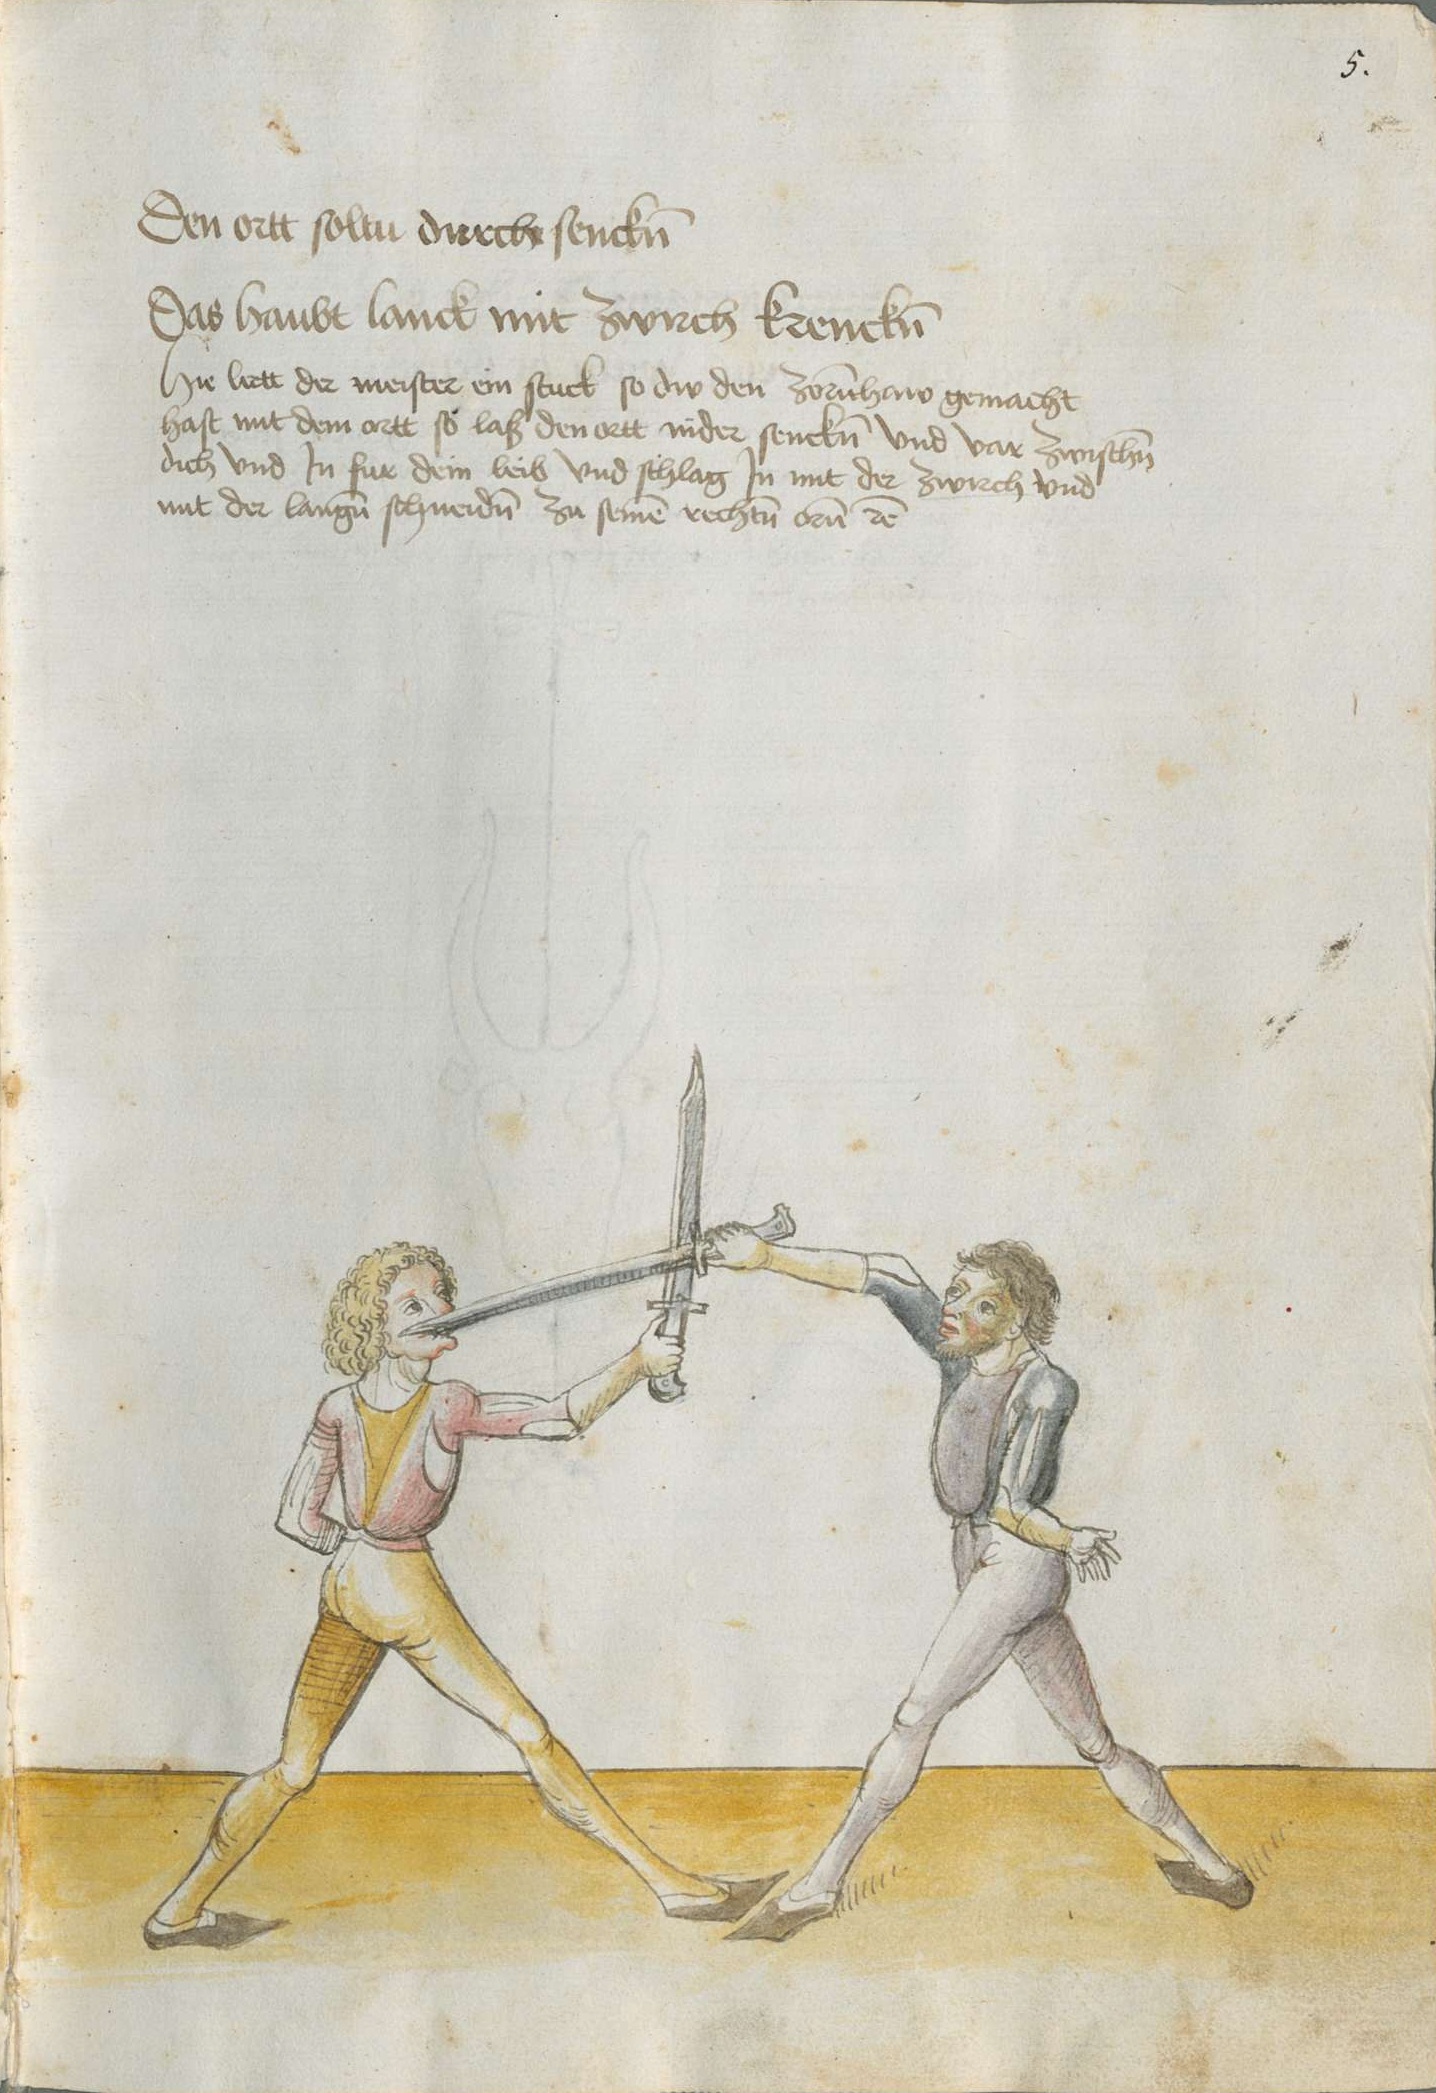 5.
Den ortt soltu durch senckn̄
Das haubt lanck mit zwirch krenckn̄
Hie lertt der meister ein stuck so dw den zorn̄haw gemacht
hast mit dem ortt so laß den ortt nider senckn̄ vnd var zwischn̄
dich vnd In fur dein leib vnd schlag In mit der zwirch vnd
mit der langn̄ schneidn̄ zu seinē rechtn̄ orn̄ rē